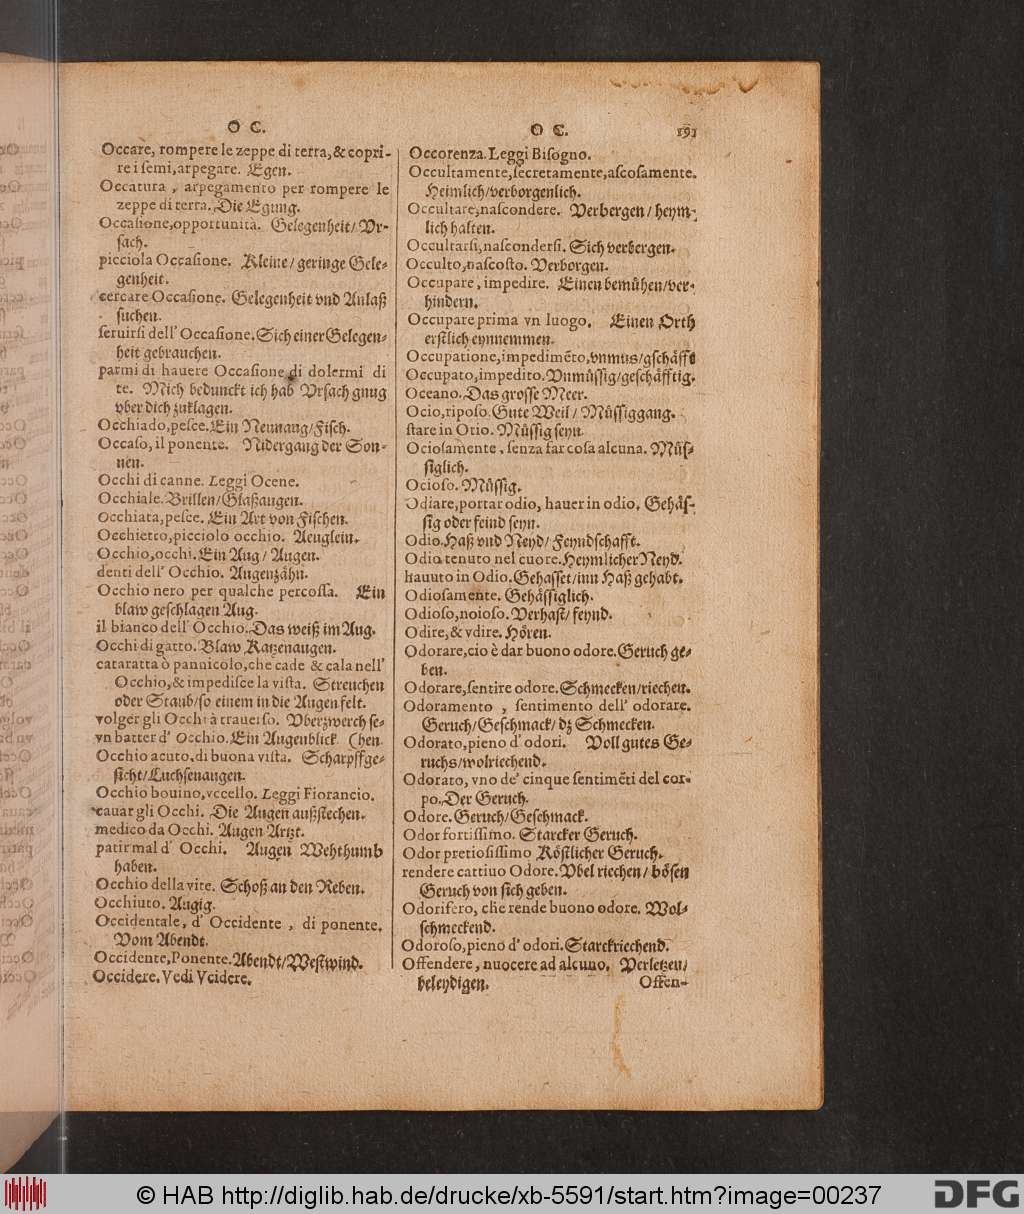 O C.
Occare, rompere le zeppe di terra, & copri-
re i semi, arpegare. Egen.
Occatura, arpegamento per rompere le
zeppe di terra. Die Egung.
Occaſione, opportunità. Gelegenheit/ Vr-
ſach.
picciola Occaſione. Kleine/ geringe Gele-
genheit.
cercare Occaſione. Gelegenheit vnd Anlaß
ſuchen.
ſeruirſi dell' Occaſione. Sich einer Gelegen-
heit gebrauchen.
parmi di hauere Occaſione di dolermi di
te. Mich bedunckt ich hab Vrſach gnug
vber dich zuklagen.
Occhiado, peſce. Ein Neunaug/ Fiſch.
Occaſo, il ponente. Nidergang der Son-
nen.
Occhi di canne. Leggi Ocene.
Occhiale. Brillen/ Glaßaugen.
Occhiata, peſce. Ein Art von Fiſchen.
Occhietto, picciolo occhio. Aeuglein.
Occhio, occhi. Ein Aug/ Augen.
denti dell' Occhio. Augenzåhn.
Occhio nero per qualche percoſſa. Ein
blaw geſchlagen Aug.
il bianco dell' Occhio. Das weiß im Aug.
Occhi di gatto. Blaw Katzenaugen.
cataratta ò pannicolo, che cade & cala nell'
Occhio, & impediſce la viſta. Streuchen
oder Staub/ ſo einem in die Augen felt.
volger gli Occhi à trauerſo. Vberzwerch ſe-
vn batter d' Occhio. Ein Augenblick (hen.
Occhio acuto, di buona viſta. Scharpffge-
ſicht/ Luchſenaugen.
Occhio bouino, vccello. Leggi Fiorancio.
cauar gli Occhi. Die Augen außſtechen.
medico da Occhi. Augen Artzt.
patir mal d' Occhi. Augen Wehthumb
haben.
Occhio della vite. Schoß an den Reben.
Occhiuto. Augig.
Occidentale, d' Occidente, di ponente.
Vom Abendt.
Occidente, Ponente. Abendt/ Weſtwind.
Occidere. Vedi Vcidere.
O C. 191
Occorenza. Leggi Biſogno.
Occultamente, ſecretamente, aſcoſamente.
Heimlich/ verborgenlich.
Occultare, naſcondere. Verbergen/ heym-
lich halten.
Occultarſi, naſconderſi. Sich verbergen.
Occulto, naſcoſto. Verborgen.
Occupare, impedire. Einen bemůhen/ ver-
hindern.
Occupare prima vn luogo. Einen Orth
erſtlich eynnemmen.
Occupatione, impedimẽto, vnmůs/ gſchåfft
Occupato, impedito. Vnmůſſig/ geſchåfftig.
Oceano. Das groſſe Meer.
Ocio, ripoſo. Gute Weil/ Můſſiggang.
ſtare in Otio. Můſſig ſeyn.
Ocioſamente, ſenza far coſa alcuna. Můſ-
ſiglich.
Ocioſo. Můſſig.
Odiare, portar odio, hauer in odio. Gehåſ-
ſig oder feind ſeyn.
Odio. Haß vnd Neyd/ Feyndſchafft.
Odio tenuto nel cuore. Heymlicher Neyd.
hauuto in Odio. Gehaſſet/ inn Haß gehabt.
Odioſamente. Gehåſſiglich.
Odioſo, noioſo. Verhaſt/ feynd.
Odire, & vdire. Hóren.
Odorare, cio è dar buono odore. Geruch ge-
ben.
Odorare, ſentire odore. Schmecken/ riechen.
Odoramento, ſentimento dell' odorare.
Geruch/ Geſchmack/ dz Schmecken.
Odorato, pieno d' odori. Voll gutes Ge-
ruchs/ wolriechend.
Odorato, vno de' cinque ſentimẽti del cor-
po. Der Geruch.
Odore. Geruch/ Geſchmack.
Odor fortiſſimo. Starcker Geruch.
Odor pretioſiſſimo Kóſtlicher Geruch.
rendere cattiuo Odore. Vbel riechen/ bóſen
Geruch von ſich geben.
Odorifero, che rende buono odore. Wol-
ſchmeckend.
Odoroſo, pieno d' odori. Starckriechend.
Offendere, nuocere ad alcuno. Verletzen/
beleydigen. Offen-
© HAB http://diglib.hab.de/drucke/xb-5591/start.htm?image=00237
DFG